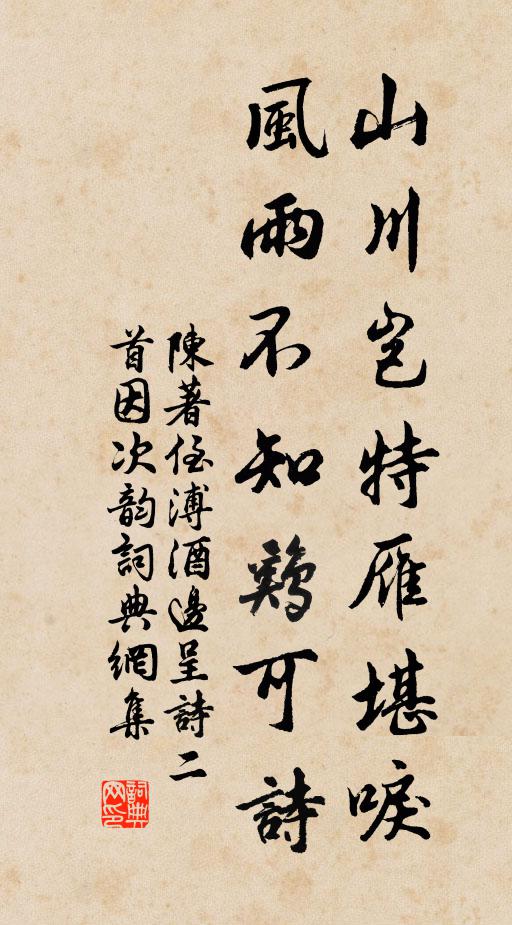 山川岂特雁堪唳
風雨不知鷄可詩
陳著侄溥酒邊呈詩二
首因次韵詞典網集
詞典
网印